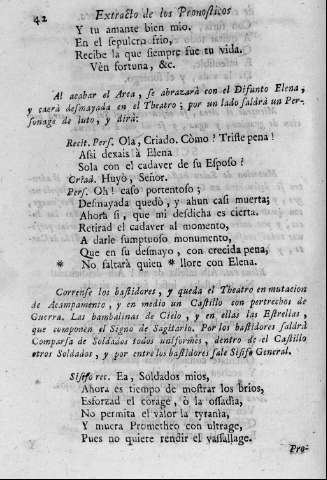 42 Extracto de los Pronosticos
Y tu amante bien mio.
En el sepulcro frio,
Recibe la que siempre fue tu vida.
Vèn fortuna, &c.
Al acabar el Area, se abrazarà con el Difunto Elena,
y caerà desmayada en el Theatro; por un lado saldrà un Per-
sonage de luto, y dirà:
Recit. Pers. Ola, Criado. Còmo? Triste pena!
Assi dexais à Elena
Sola con el cadaver de su Esposo?
Criad. Huyò, Señor.
Pers. Oh! caso portentoso;
Desmayada quedò, y ahun casi muerta;
Ahora si, que mi desdicha es cierta.
Retirad el cadaver al momento,
A darle sumptuoso monumento,
Que en su desmayo, con crecida pena,
* No faltarà quien * llore con Elena.
Corrense los bastidores, y queda el Theatro en mutacion
de Acampamento, y en medio un Castillo con pertrechos de
Guerra. Las bambalinas de Cielo, y en ellas las Estrellas,
que componen el Signo de Sagitario. Por los bastidores saldrà
Comparsa de Soldados todos uniformes, dentro de el Castillo
otros Soldados, y por entre los bastidores sale Sisifo General.
Sisifo rec. Ea, Soldados mios,
Ahora es tiempo de mostrar los brios,
Esforzad el corage, ò la ossadia,
No permita el valor la tyrania,
Y muera Prometheo con ultrage,
Pues no quiere rendir el vassallage.
Pro-